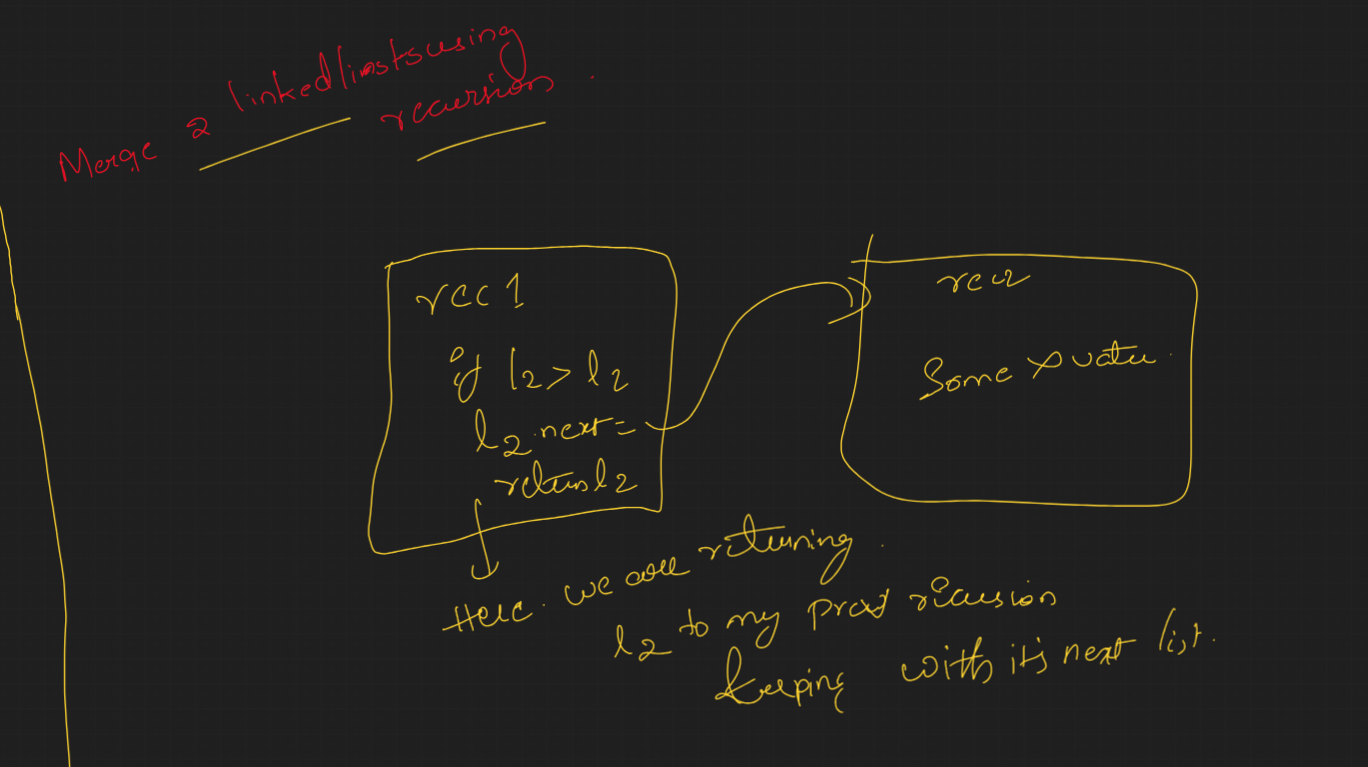 Merge 2 linked linsts using
recursion.
rec 1
if l2 > l2
l2.next =
return l2
rec2
Some value.
Here. we are returning.
l2 to my recursion
keeping with it's next list.